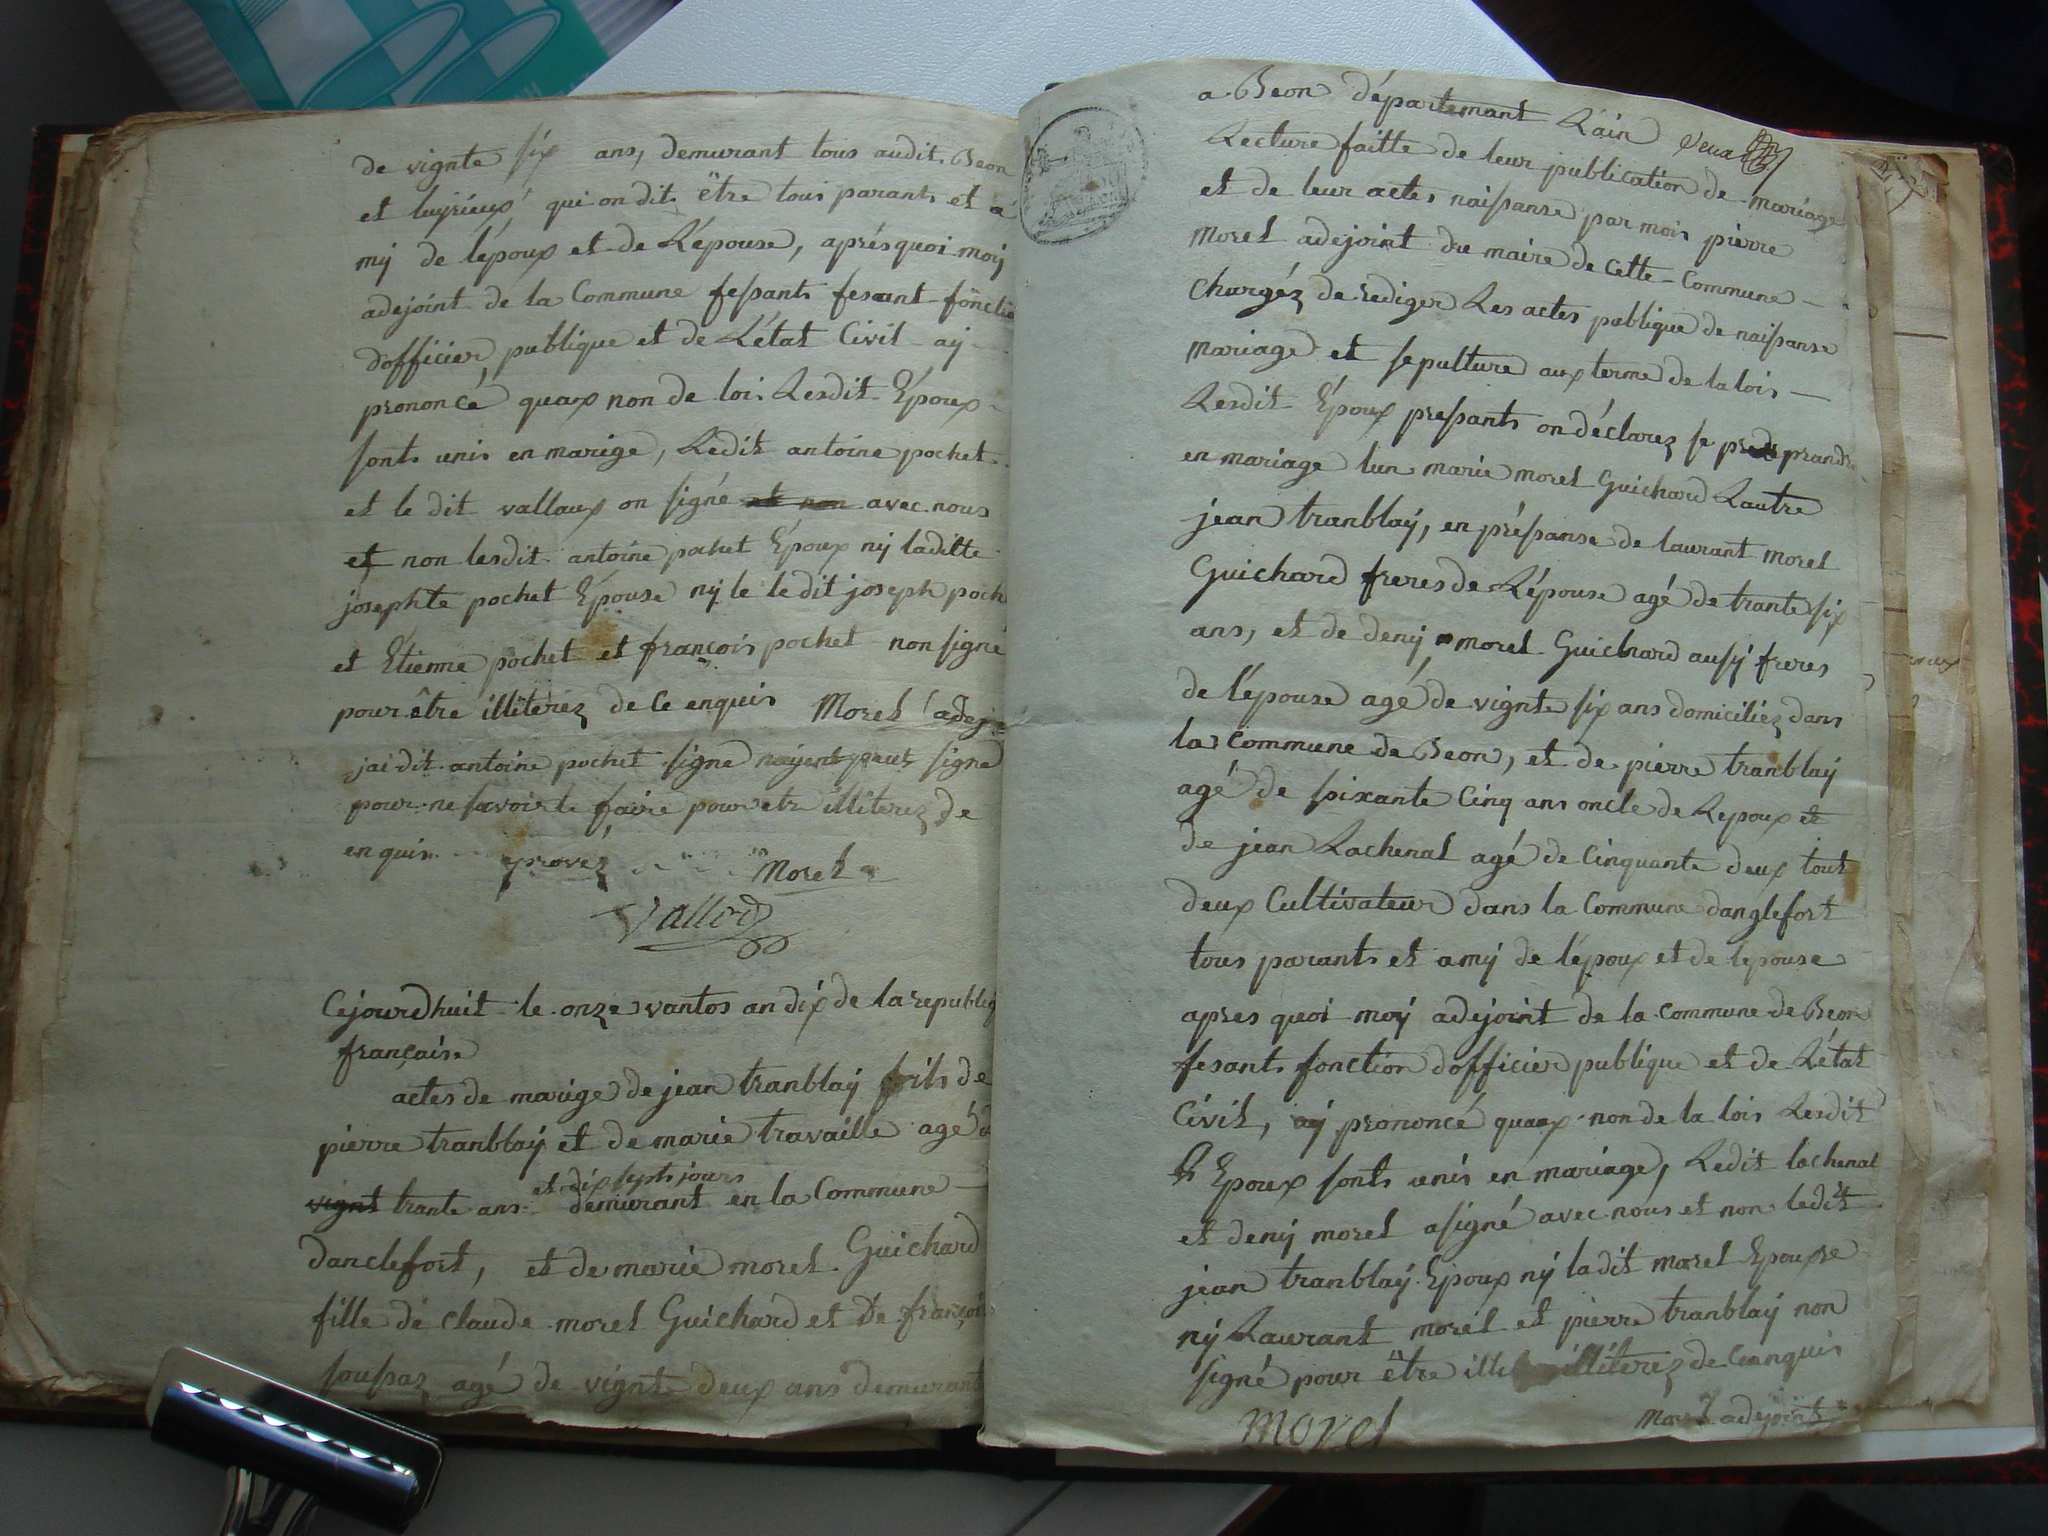 de vignte six ans, demurant tous audit Beon
et luyrieux qui on dit être tous parants et a
my de lépoux et de Lépouse, aprés quoi moy
adejoint de la Commune fessants fesant fonctio
dofficier publique et de Létat Civil ay
prononcé quaux non de loi Lesdit Époux
sonts unis en marige, Ledit antoine pochet
et le dit vallaux on signé et non avec nous
et non lesdit antoine pochet Époux ny ladilte
josephte pochet Épouse ny le ledit joseph poch
et Etienne pochet et françois pochet non signé
pour être illiterez de Ce enquis Morel adej
jai dit antoine pochet signe nayent peut signe
pour ne savoir le faire pour etr illiterez de
enquis aprovéz Morel
Vallod
Cejourdhuit le onze vantos an dix de la republiq
française
actes de marige de jean tranblaÿ foils de
pierre tranblaÿ et de marie travaille agé d
et dix septs jours
vignt trante ans demurant en la Commune
danclefort, et de marie morel Guichard
fille de Claude morel Guichard et De françois
soussaz agé de vignte deux ans demurant
a Beon départemant Lain
Lecture faitte de leur publication de mariage
et de leur actes naissanse par mois pierre
Morel adejoint du maire de Cette Commune
Chargéz de rediger Les actes publique de naissanse
Mariage et sepulture aux terme de la lois
Lesdit Époux pressants on déclarez se pred prandr
en mariage lun marie morel Guichard Lautre
jean tranblaÿ, en préssanse de laurant morel
Guichard freres de Lépouse agé de trante six
ans, et de deny morel Guichard ausy freres
de lépouse agé de vignte six ans domiciliez dans
la Commune de Beon, et de pierre tranblaÿ
agé de soixante Cinq ans oncle de Lepoux et
de jean Lachenal agé de Cinquante deux tous
deux Cultivateur dans la Commune danglefort
tous parants et amy de lépoux et de lepouse
apres quoi moy adejoint de la commune de Beon
fesants fonction dofficier publique et de Létat
Civil, ay prononcé quaux non de la lois Lesdit
Epoux sonts unis en mariage, Ledit lachenal
et deny morel asigné avec nous et non ledit
jean tranblaÿ Époux ny ladit morel Epouxse
ny Laurant morel et pierre tranblaÿ non
signé pour être illi illiterez de Ce enquis
Morel Morel adejoint